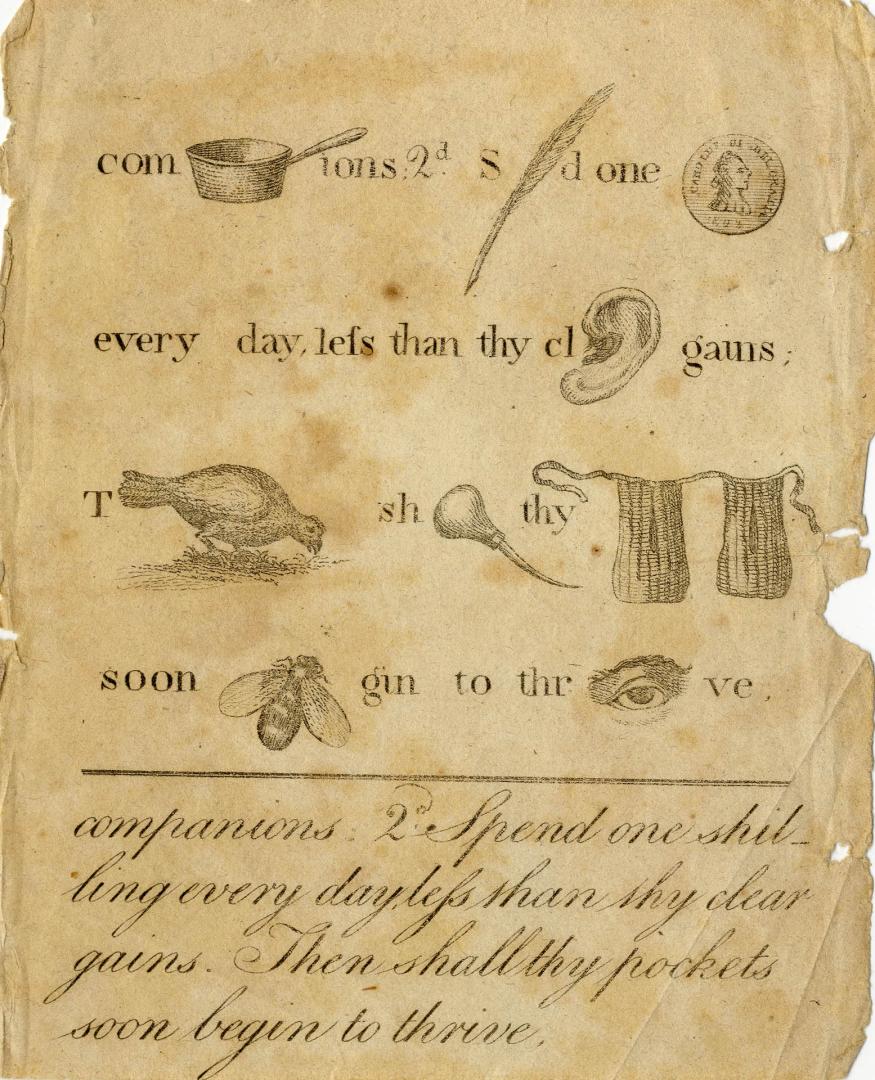 com ions. 2d S d one
every day, leſs than thy cl gains;
T sh thy
soon gin to thr ve.
companions. 2d. Spend one shil-
ling every day, leſs than thy clear
gains. Then shall thy pockets
soon begin to thrive.